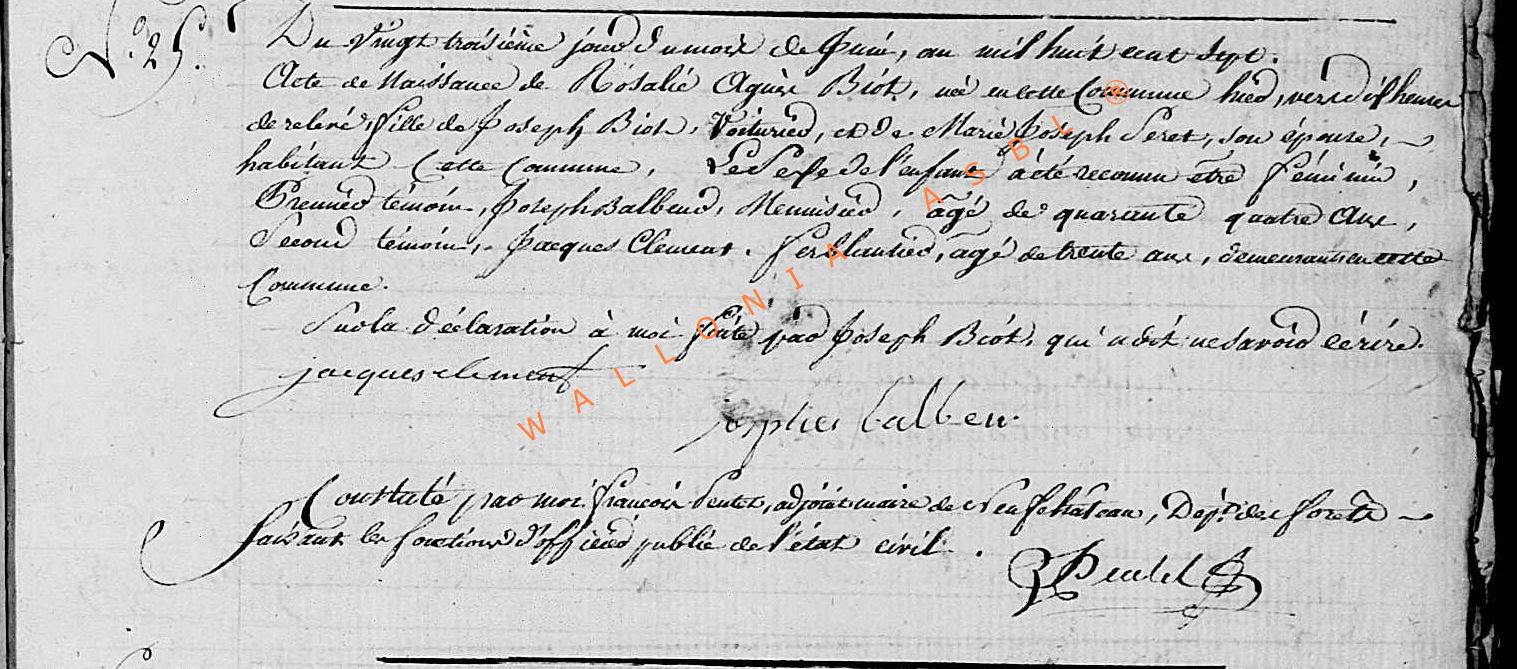 N.° 25.
Du vingt troisième jour du mois de Juin, an mil huit cent sept.
Acte de Naissance de Rosalie Agnès Biot, née en cette Commune hier, vers dix heures
de relevé, fille de Joseph Biot, Voiturier, et de Marie Joseph Peret, son épouse,
habitant Cette Commune, Le Sexe de l'enfant a été reconnu être féminin,
Premier témoin, Joseph Balbeur, Menuisier, âgé de quarante quatre Ans,
Second témoin, Jacques Clement, ferblantier, âgé de trente ans, demeurants en cette
Commune.
Sur la déclaration à moi faite par Joseph Biot, qui a dit ne savoir écrire.
jacques clement
balbeur
Constaté par moi françois Pentel, adjoint maire de Neufchâteau, Dép.t des forets
faisant les fonctions d'officier public de l'état civil.
Pentel
WALLONIA ASBL ®